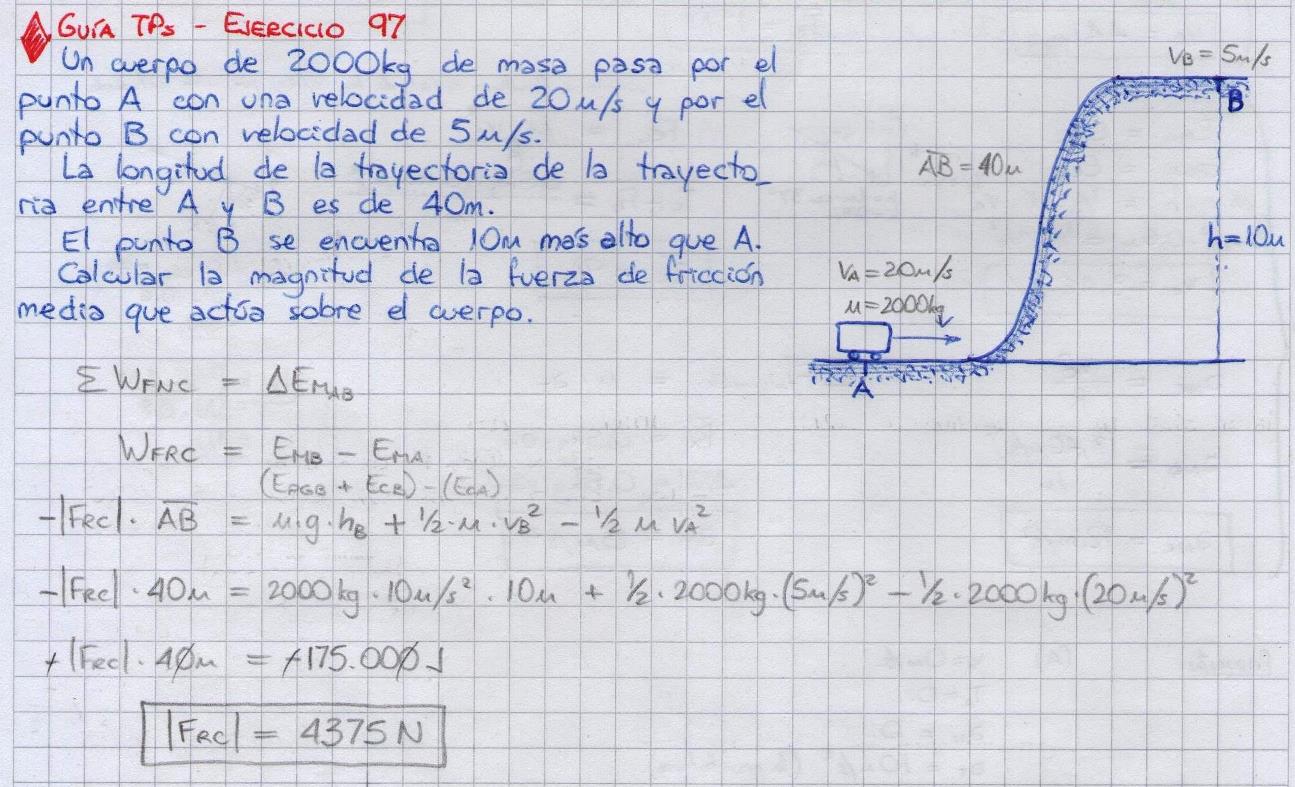 GUÍA TPs - EJERCICIO 97
Un cuerpo de 2000kg de masa pasa por el
punto A con una velocidad de 20m/s y por el
punto B con velocidad de 5m/s.
La longitud de la trayectoria de la trayecto_
ria entre A y B es de 40m.
El punto B se encuentra 10m más alto que A.
Calcular la magnitud de la fuerza de fricción
media que actúa sobre el cuerpo.
VB = 5m/s
B
AB = 40m
h=10m
VA = 20m/s
m = 2000kg
A
Σ WFNC = ΔEMAB
WFRC = EMB - EMA
(EPGB + ECB) - (ECA)
-|FRC| · AB = m·g·hB + 1/2·m·vB² - 1/2 m vA²
-|FRC| · 40m = 2000kg · 10m/s² · 10m + 1/2 · 2000kg · (5m/s)² - 1/2 · 2000kg · (20m/s)²
+|FRC| · 40m = +175.000J
|FRC| = 4375N